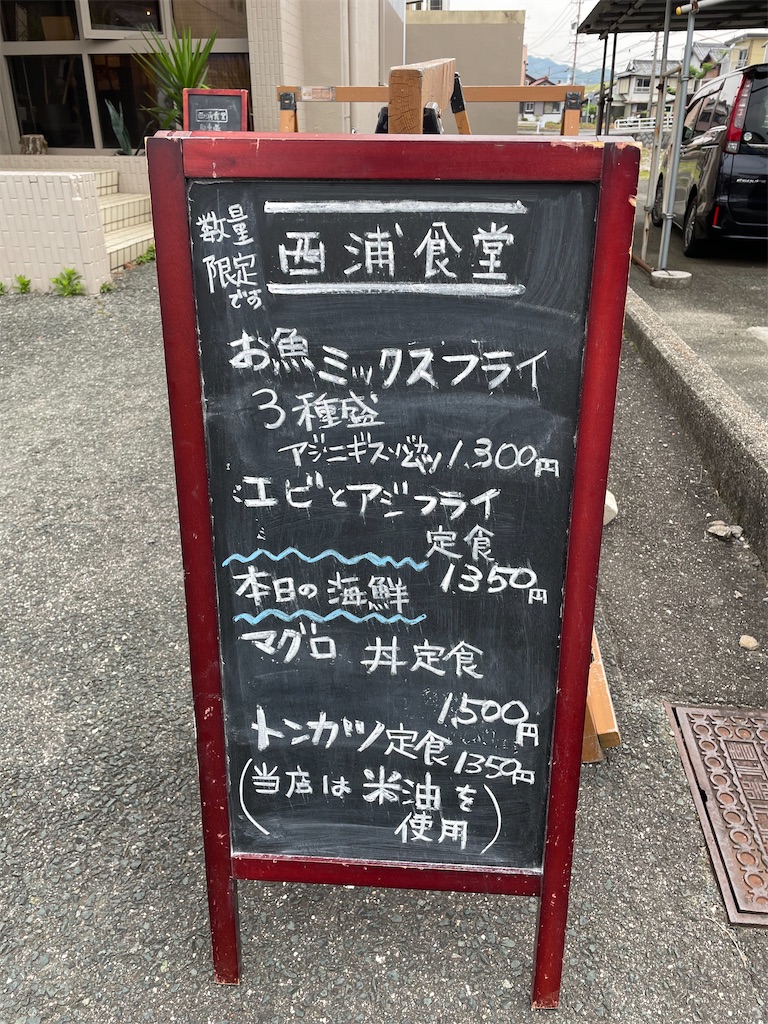 数量
限定
です
西浦食堂
お魚ミックスフライ
3種盛
アジニギス 1,300円
エビとアジフライ
定食
1350円
本日の海鮮
マグロ 丼定食
1,500円
トンカツ定食1350円
(当店は米油を
使用)
西浦食堂